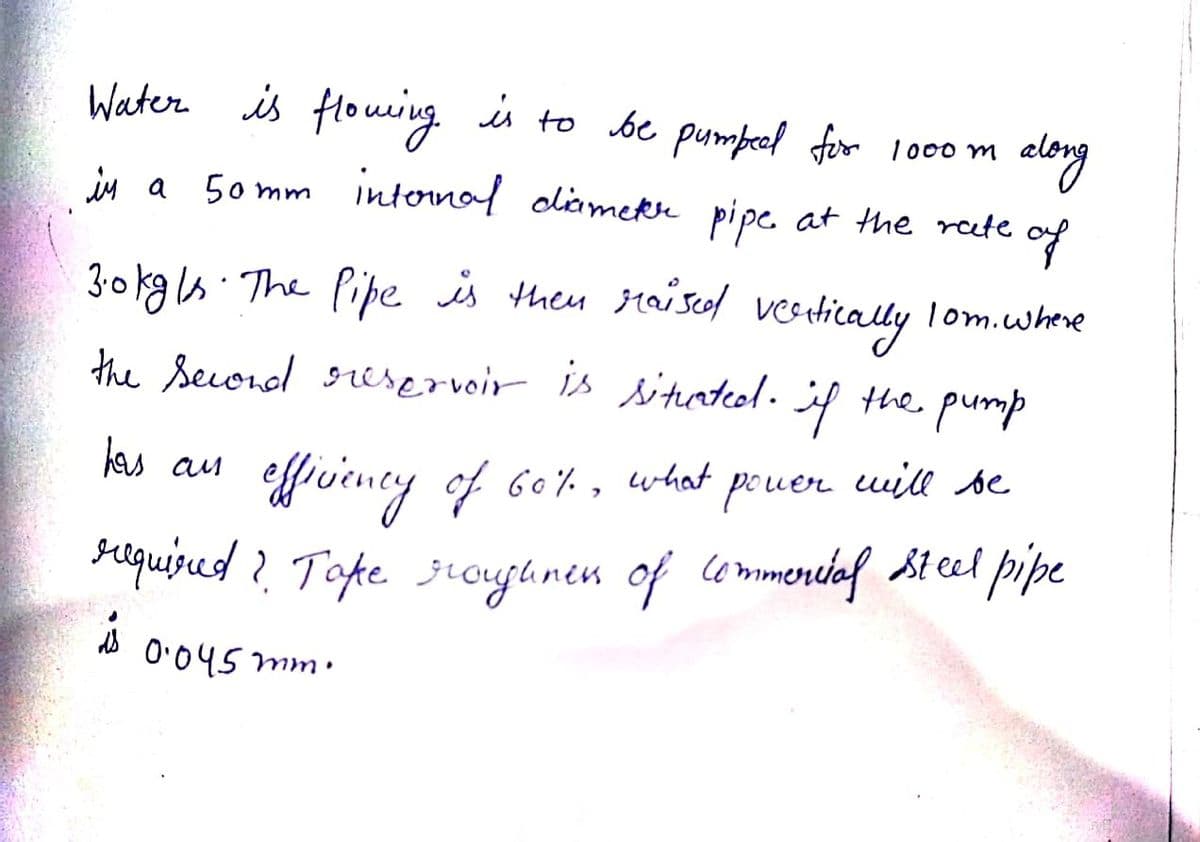 Water is flowing is to be pumped for 1000 m along
in a 50mm internal diameter pipe at the rate of
3.0 kg/s. The Pipe is then raised vertically 10m. where
the Second reservoir is situated. if the pump
has an efficiency of 60%, what power will be
required? Take roughness of Commercial Steel pipe
is 0.045 mm.